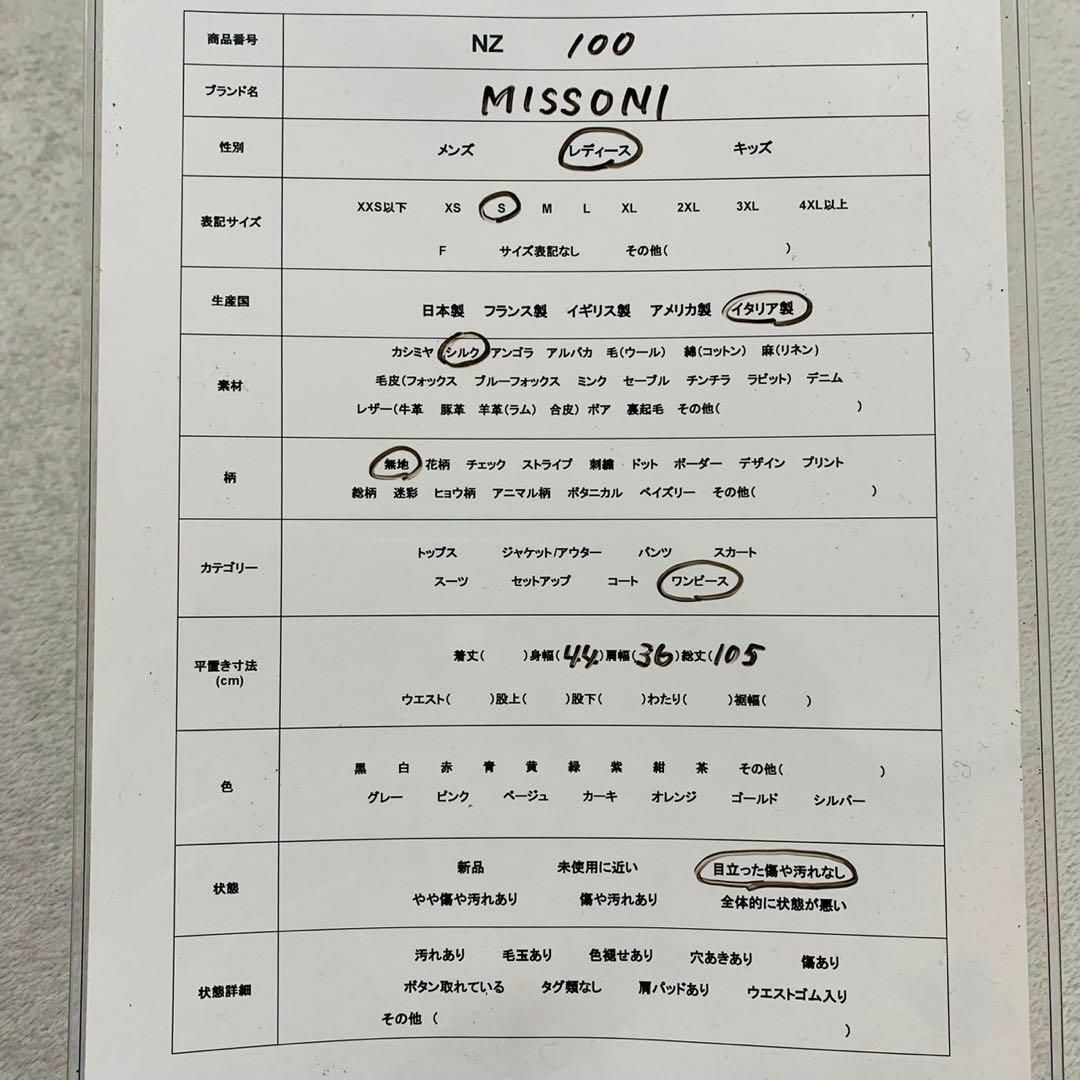 商品番号 NZ 100
ブランド名 MISSONI
性別 メンズ レディース キッズ
表記サイズ
XXS以下 XS S M L XL 2XL 3XL 4XL以上
F サイズ表記なし その他( )
生産国 日本製 フランス製 イギリス製 アメリカ製 イタリア製
素材
カシミヤ シルク アンゴラ アルパカ 毛(ウール) 綿(コットン) 麻(リネン)
毛皮(フォックス ブルーフォックス ミンク セーブル チンチラ ラビット) デニム
レザー(牛革 豚革 羊革(ラム) 合皮) ボア 裏起毛 その他( )
柄
無地 花柄 チェック ストライプ 刺繍 ドット ボーダー デザイン プリント
総柄 迷彩 ヒョウ柄 アニマル柄 ボタニカル ペイズリー その他( )
カテゴリー
トップス ジャケット/アウター パンツ スカート
スーツ セットアップ コート ワンピース
平置き寸法
(cm)
着丈( )身幅(44)肩幅(36)総丈(105
ウエスト( )股上( )股下( )わたり( )裾幅( )
色
黒 白 赤 青 黄 緑 紫 紺 茶 その他( )
グレー ピンク ベージュ カーキ オレンジ ゴールド シルバー
状態
新品 未使用に近い 目立った傷や汚れなし
やや傷や汚れあり 傷や汚れあり 全体的に状態が悪い
状態詳細
汚れあり 毛玉あり 色褪せあり 穴あきあり 傷あり
ボタン取れている タグ類なし 肩パッドあり ウエストゴム入り
その他 ( )